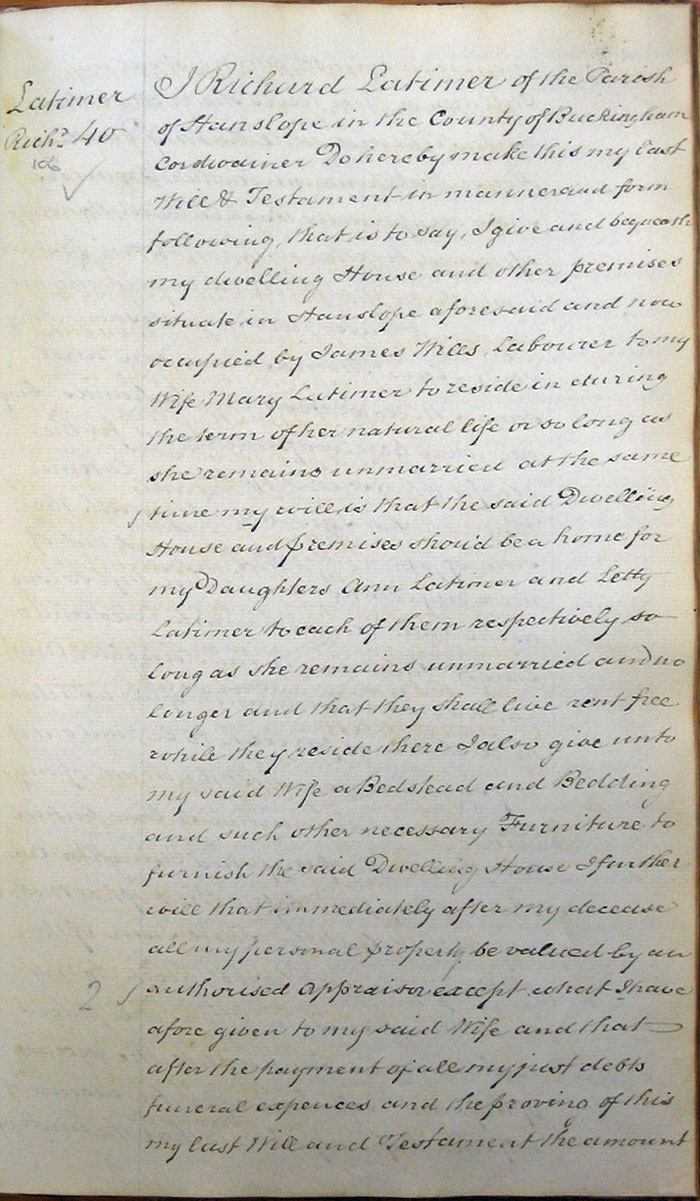 Latimer
Rich.d 40
106
I Richard Latimer of the Parish
of Hanslope in the County of Buckingham
Cordwainer Do hereby make this my last
Will & Testament in manner and form
following, that is to say, I give and bequeath
my dwelling House and other premises
situate in Hanslope aforesaid and now
occupied by James Wills Labourer to my
Wife Mary Latimer to reside in during
the term of her natural life or so long as
she remains unmarried at the same
time my will is that the said Dwelling
House and premises should be a home for
my Daughters Ann Latimer and Letty
Latimer to each of them respectively so
long as she remains unmarried and no
longer and that they shall live rent free
while they reside there I also give unto
my said Wife a Bedstead and Bedding
and such other necessary Furniture to
furnish the said Dwelling House I further
will that immediately after my decease
all my personal property be valued by an
2
authorised appraisor except what I have
afore given to my said Wife and that
after the payment of all my just debts
funeral expences and the proving of this
my last Will and Testament the amount